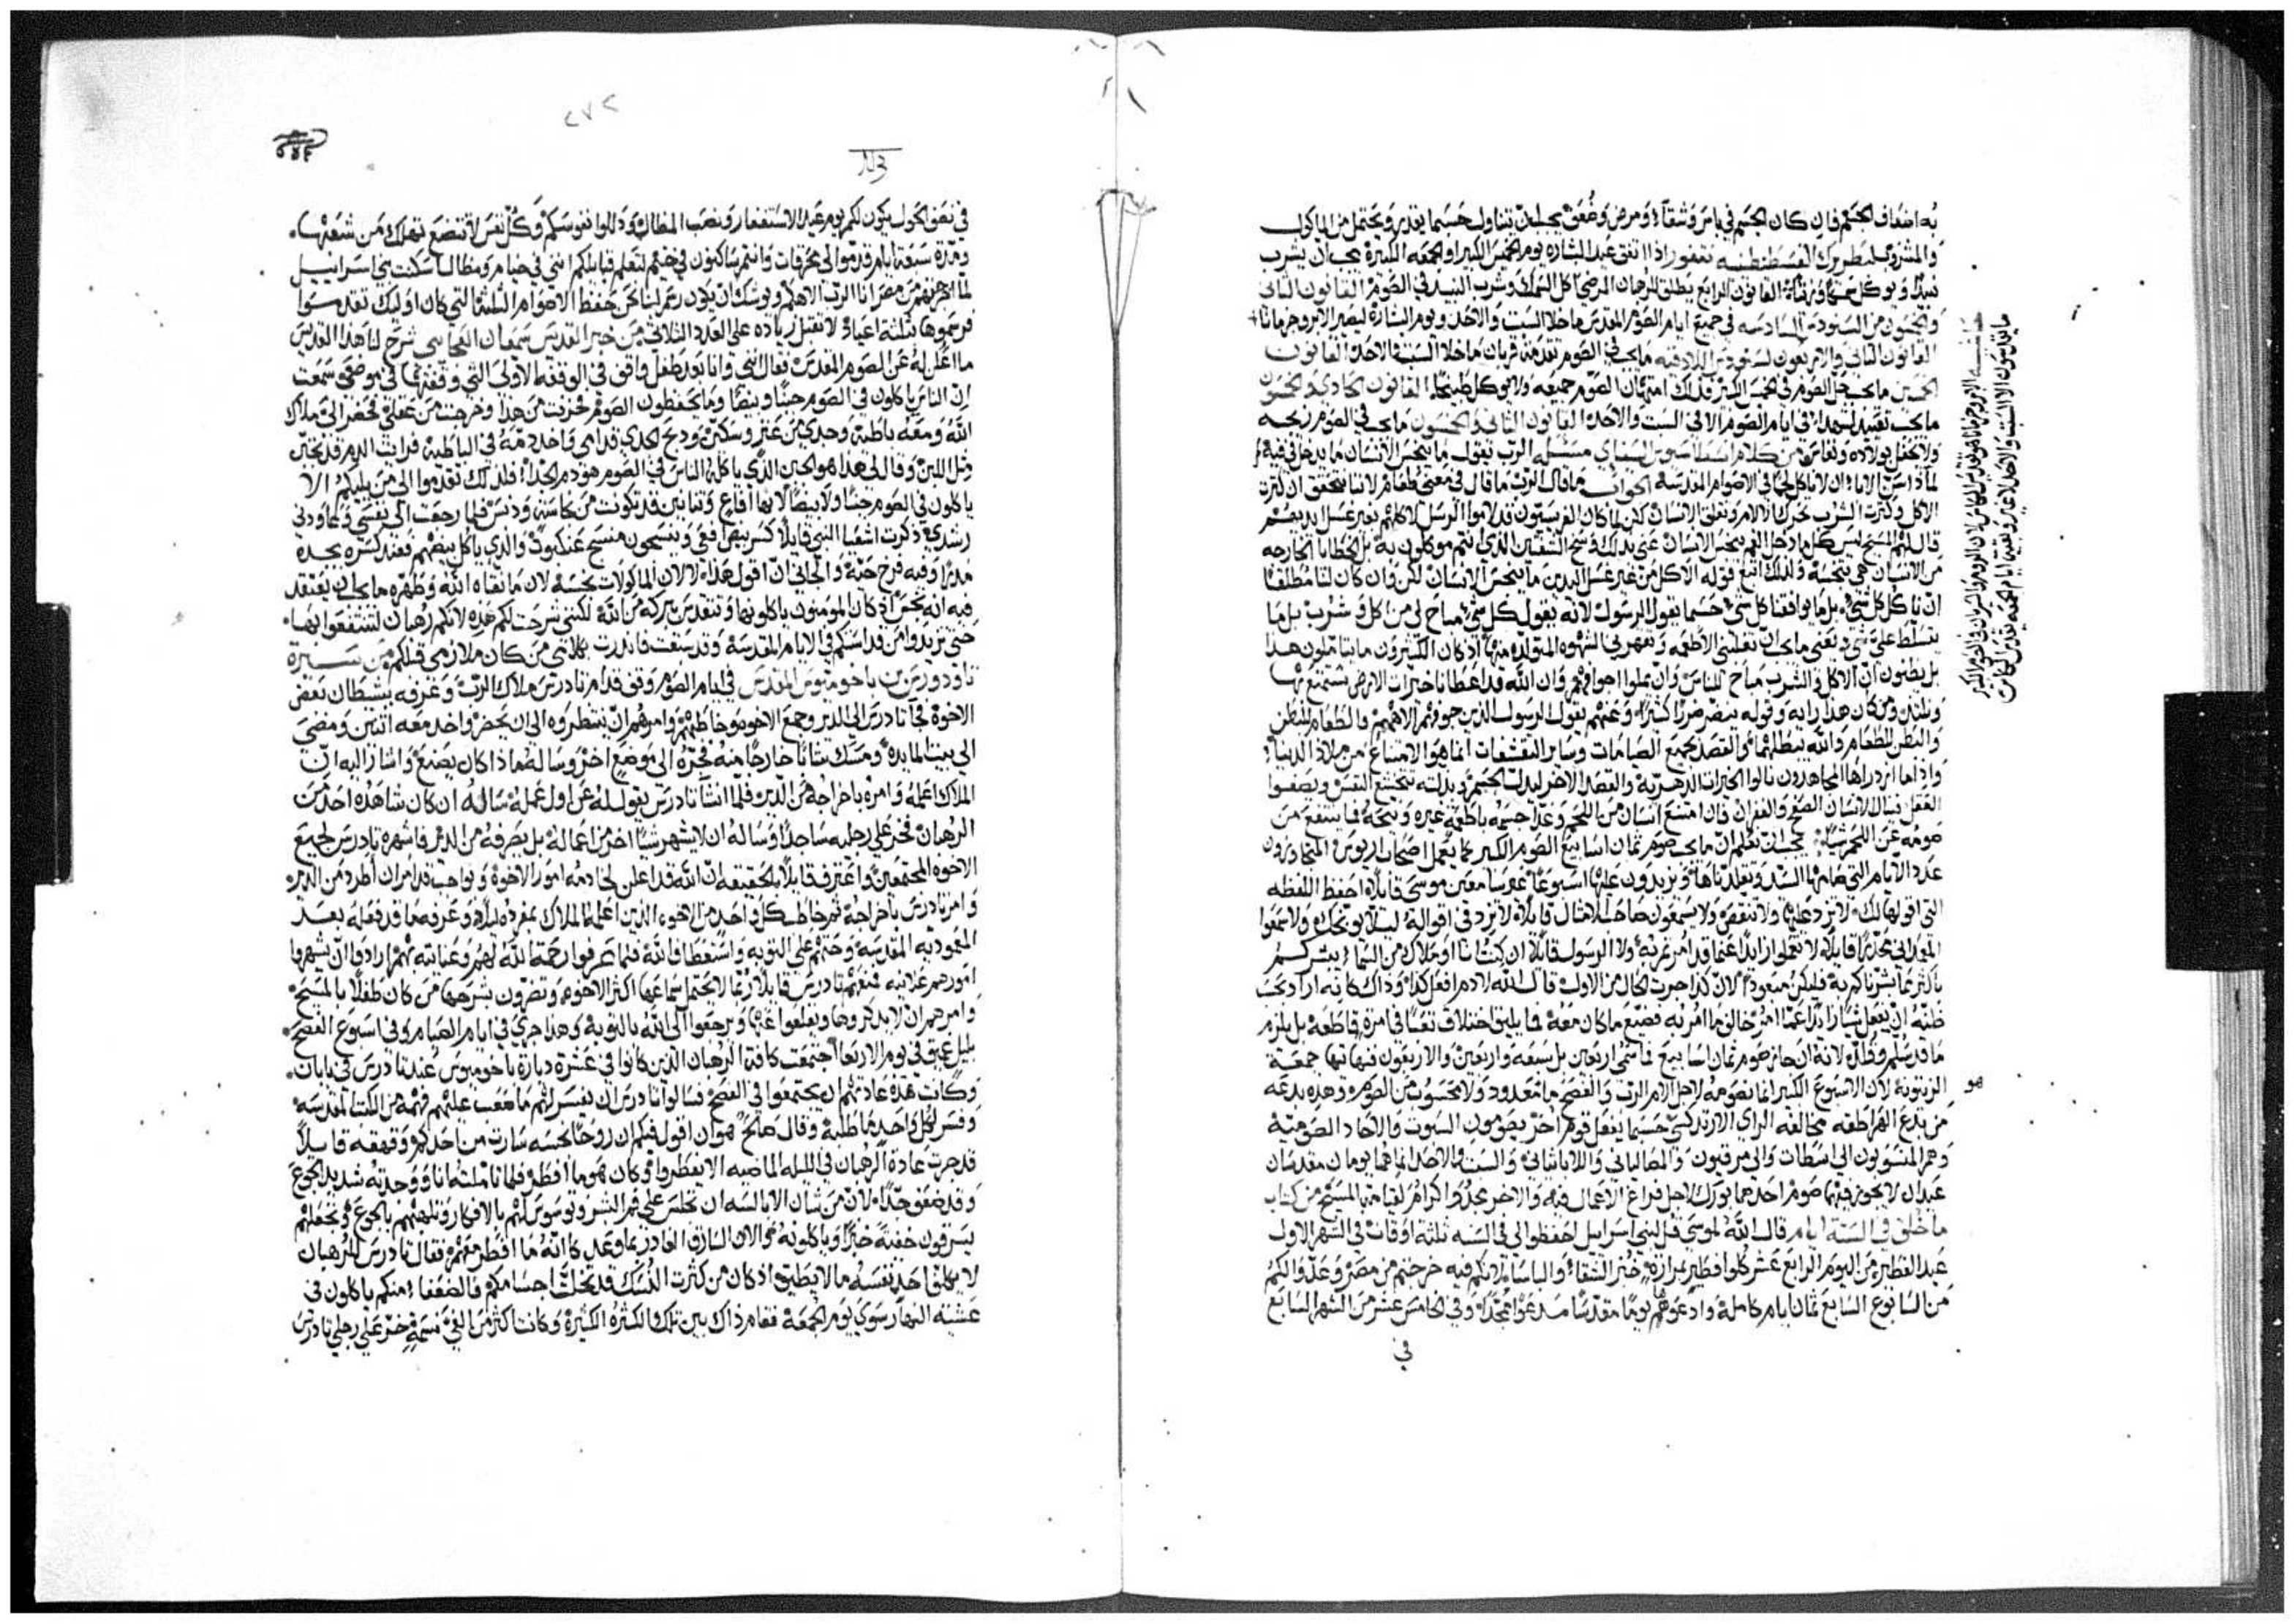 به اضعاف الجسم فان كان الجسم في باس وشقاء ومرض وضعف يجب ان تتناول حسبما يقدر ويحتمل من الماكول
والمشروب لبطريرك القسطنطينيه نقفور اذا اتفق عيد البشاره يوم الخميس الكبير او الجمعه الكبيرة يجب ان يشرب
نبيذ ويوكل سمك القانون الرابع يطلق للرهبان المرضى اكل السمك وشرب النبيذ في الصوم القانون الثاني
والخمسون من السنودس السادسه في جميع ايام الصوم المقدس ما خلا السبت والاحد ويوم البشارة ليصير الابروجزمانا
القانون التاسع والاربعون لسنودس اللادقيه ما يجب في الصوم تقدمة قربان ما خلا السبت والاحد القانون
الخمسين ما يجب حل الصوم في الخميس الكبير فذلك امتهان الصوم جميعه ولا يوكل طبيخا القانون الحادي والخمسون
ما يجب تعييد لشهداء في ايام الصوم الا في السبت والاحد القانون الثاني والخمسون ما يجب في الصوم زيجه
ولا تحفل بولاده ونفاس من كلام انسطاسيوس السيناي مسئله الرب يقول ما ينجس الانسان ما يدخل في فيه
لماذا سن الاباء ان لا ناكل لحما في الاصوام المقدسة الجواب ما قال الرب ما قال في معنى طعام لاننا نتحقق ان كثرت
الاكل وكثرت الشرب تحرك الالام وتقلق الانسان لكن لما كان الفريسيون قد لاموا الرسل لاكلهم بغير غسل ايديهم
قال لهم المسيح ليس كلما دخل الفم ينجس الانسان عنى بذلك وسخ الشفتين الذي انتم موكلون به بل الخطايا الخارجه
من الانسان هي تنجسه ولذلك اتبع قوله الاكل من غير غسل اليدين ما ينجس الانسان لكن وان كان لنا مطلقا
ان ناكل كل شي بل ما يوافقنا كل شي حسبما يقول الرسول لانه يقول كل شي مباح لي من اكل وشرب بل ما
يتسلط علي شي ويعني ما يجب ان تغلبني الاطعمه وتقهرني الشهوه المتولده منها اذ كان الكثيرون ما يتاملون هذا
بل يظنون ان الاكل والشرب مباح للناس وان يملوا اجوافهم وان الله قد اعطانا خيرات الارض نستمتع بها
ونلتذ ومن كان هذا رايه وقوله يتضرر ضررا كثيرا وعنهم يقول الرسول الذين جوفهم الاههم والطعام للبطن
والبطن للطعام والله يبطلهما والقصد بجميع الصيامات وساير التقشفات انما هو الامتناع من ملاذ الدنيا
واذا ما ازدراها المجاهدون نالوا الخيرات الدهرية والقصد الاخر ليذل الجسم وبذلته تتخشع النفس ويصفوا
العقل فينال الانسان الصفح والغفران فان امتنع انسان من اللحم وغذا جسمه باطعمة غيره ونجحة فما ينتفع من
صومه عن اللحم شياء يجب ان تعلم ان ما يجب صوم ثمان اسابيع الصوم الكبير كما يعمل اصحاب اريوس المتجاوزون
عدد الايام التي صامها السيد وتقلدناها ويزيدون عليها اسبوعا غير سامعين موسى قايلا احفظ اللفظه
التي اقولها لك لا تزد عليها ولا تنقص ولا يسمعون صاحب الامثال قايلا لا تزد في اقواله ليلا يوبخك ولا سمعوا
ما قد سلم وقلد لانه ان جاز صوم ثمان اسابيع فما سمي اربعين بل سبعه واربعين والاربعون فنهايتها جمعة
الزيتونة لان الاسبوع الكبير انما نصومه لاجل الام الرب والفصح ما معدود ولا محسوب من الصوم وهذه بدعه
من بدع الهراطقه مخالفه الراي الارتدكسي حسبما يفعل قوم اخر يصومون السبوت والاحاد الصوميّة
ما خلق في الستة ايام قال الله لموسى قل لبني اسرايل احفظوا لي في السنه ثلثة اوقات في الشهر الاول
عيد الفطير من اليوم الرابع عشر كلوا فطير بمرارة خبز الشقاء والباساء لانكم فيه خرجتم من مصر وعدوا لكم
من السابوع السابع ثمان ايام كاملة وادعوهم يوما مقدسا مدعوا ممجدا وفي الخامس عشر من الشهر السابع
في
هو
حاشيه الابروجزمانا هو قداس الكاس لان الروم والسريان في الصوم الكبير
ما يقدسون الا السبت والاحد لا غير وبقيه ايام الجمعه قداس الكاس
٢٧٢
في نصف الحول يكون لكم يوم عيد الاستغفار ونصب المظال وذللوا نفوسكم وكل نفس لا تتضع تهلك من شعبها
ومدة سبعة ايام قدموا لي محرقات وانتم ساكنون في خيم لتعلم قبايلكم انني في خيام ومظال اسكنت بني اسراييل
لما اخرجتهم من مصر انا الرب الاهكم ويوشك ان يكون رسم لنا نحن حفظ الاصوام الثلثة التي كان اوليك تقدسوا
فرسموها ثلثة اعياد لا تقبل زياده على العدد الثلاثي من خبر القديس سمعان العجايبي شرح لنا هذا القديس
ما اعلن له عن الصوم المقدس فقال انني وانا بعد طفل واقف في الوقفه الاولى التي وقفتها في موضعي سمعت
ان الناس ياكلون في الصوم جبنا وبيضا وما يحفظون الصوم فحزنت من هذا وخرجت من عقلي فحضر الي ملاك
الله ومعه باطية وجدي من عنز وسكين وذبح الجدي قدامي واخذ دمه في الباطية فرايت الدم قد تخثر
مثل اللبن وقال لي هذا هو الجبن الذي ياكله الناس في الصوم هو دم الجداء فلذلك تقدموا الى من يليكم الا
ياكلون في الصوم جبنا ولا بيضا لانها افاع وثنابين قد تكونت من نجاسة ودنس فلما رجعت الى نفسي وعاودني
رشدي ذكرت اشعيا النبي قايلا كسر بيض افعى وينسجون منسج عنكبوت والذي ياكل بيضهم فعند كسره يجده
مذرا وفيه فرخ حية والجاني ان اقول هذا لا لان الماكولات نجسه لان ما نقاه الله وطهره ما يجب ان يعتقد
فيه انه نجس اذ كان المومنون ياكلونها وتتقدس ببركة من الله لكنني شرحت لكم هذه لانكم رهبان لتنتفعوا بها
حتى تزيدوا من قدسكم في الايام المقدسة وقد سبقت فانذرت بكلامي من كان ملازمي قبلكم من سيرة
ثاودورس باخوميوس المقدس في ايام الصوم وقف قدام تادرس ملاك الرب وعرفه بشيطان بعض
الاخوة فجا تادرس الى الدير وجمع الاخوة وخاطبهم وامرهم ان ينتظروه الى ان يحضر واخذ معه اثنين ومضى
الى بيت المايدة ومسك شابا خارجا منه فجره الى موضع اخر وساله ماذا كان يصنع واشار اليه ان
الملاك اعلمه وامره باخراجه من الدير فلما انشا تادرس يقول له عن اول عمله ساله ان كان شاهده احد من
الرهبان فخر على رجليه ساجدا وساله ان لا يشهر شيا اخر من اعماله بل يصرفه من الدير فاشهره تادرس لجميع
الاخوه المجتمعين واعترف قايلا بالحقيقه ان الله قد اعلن لخادمه امور الاخوة وبواجب قد امر ان اطرد من الدير
وامر تادرس باخراجه ثم خاطب كل واحد من الاخوه الذين اعلمه الملاك بمفرده ليلا وعرفه ما قد فعله بعد
المعموديه المقدسة وحثهم على التوبه واستعطاف الله فلما عرفوا رحمة الله لهم وعنايته بهم ارادوا ان يشهروا
امورهم علانيه فمنعهم تادرس قايلا ربما لا يحتمل سماعها اكثر الاخوه وتضرون بشرحها من كان طفلا بالمسيح
وامرهم ان لا يذكروها ويقلعوا عنها ويرجعوا الى الله بالتوبة وهذا جرى في ايام الصيام وفي اسبوع الفصح
بليل عميق في يوم الاربعا اجتمعت كافة الرهبان الذين كانوا في عشرة ديارة باخوميوس عند تادرس في بابات
وكانت هذه عادتهم ان يجتمعوا في الفصح فسالوا تادرس ان يفسر لهم ما صعب عليهم فهمه من الكتب المقدسه
وفسر لكل واحد ما طلبه وقال صالح هو ان اقول فيكم ان روحا نجسه سارت من احدكم وقهقه قايلا
قد جرت عادة الرهبان في الليله الماضيه الا يفطروا وكان هو ما افطر فلما تاملته انا ووجدته شديد الجوع
وقد ضعف جدا لان من شان الابالسه ان تجلس على فم البشر وتوسوس لهم بالافكار وتلهبهم بالجوع وتجعلهم
يسرقون خفية خبزا وياكلونه هو الان السارق الغادر كانه ما افطر معهم فقال تادرس للرهبان
لا يكلف احد نفسه ما لا يطيق اذ كان من كثرت النسك قد نحلت اجسامكم والضعفاء منكم ياكلون في
عشية النهار سوى يوم الجمعة فقام ذاك بين تلك الكثرة الكثيرة وكانت اكثر من الفي نسمة فخر على رجلي تادرس